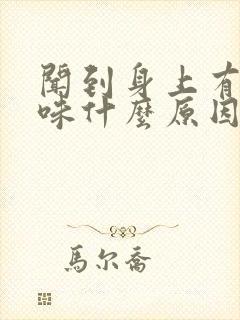 聞到身上有
味什麼原因
馬尔喬